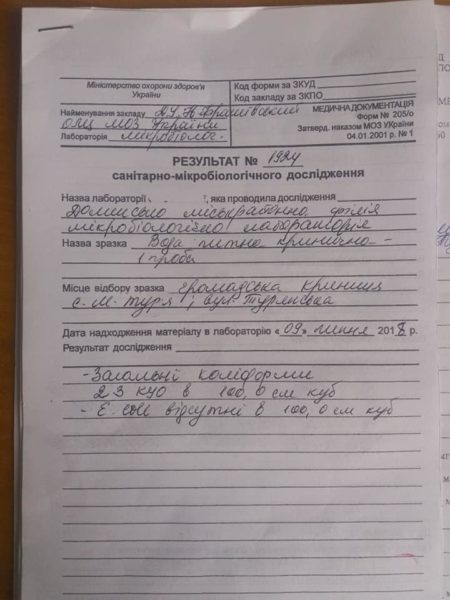 Міністерство охорони здоров'я
України
Код форми за ЗКУД
Код закладу за ЗКПО
Найменування закладу ДУ "Ів-Франківський
ОЛЦ МОЗ України
Лабораторія мікробіолог-
МЕДИЧНА ДОКУМЕНТАЦІЯ
Форм № 205/о
Затверд. наказом МОЗ УКраїни
04.01.2001 р. № 1
РЕЗУЛЬТАТ № 1924
санітарно-мікробіологічного дослідження
Назва лабораторії, яка проводила дослідження
Долинська міськрайонна філія
мікробіологічна лабораторія
Назва зразка Вода питна кринична -
1 проба
Місце відбору зразка громадська криниця
с. М. Тур'я, вул Турянська
Дата надходження матеріалу в лабораторію «09» липня 2018 р.
Результат дослідження
- Загальні коліформи
23 КУО в 100,0 см куб
- E. coli відсутні в 100,0 см куб